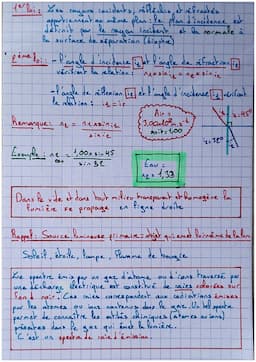 1ère loi: Les rayons incidents, réfléchis et réfractés
appartiennent au même plan : le plan d'incidence est
définit par le rayon incident et la normale à
la surface de séparation (dioptre)
2ème loi: - l'angle d'incidence i1 et l'angle de réfraction i2
vérifient la relation : n1 x sin i1 = n2 x sin i2
- l'angle de réflexion et l'angle d'incidence i1 vérifient
la relation :
Air =
Remarque: n2 = n1 x sin i1
sin i2
soit 1,00
i=45°
Exemple: n2 = 1,00 x sin 45
sin 32
Eau =
n2 = 1,33
Dans le vide et dans tout milieu transparent et homogène la
lumière se propage en ligne droite
Rappel: Source lumineuse primaire: objet qui émet lui même de la lum
Soleil, étoile, lampe, flamme de bougie
Le spectre émis par un gaz d'atome ou d'ions traversé par
une décharge électrique est constitué de raies colorées sur
fond noir. Ces raies correspondent aux radiations émises
par les atomes ou ions contenus dans le gaz. Un tel spectre
permet de connaître les entités chimiques (atomes ou ions)
présentes dans le gaz qui émet la lumière.
C'est un spectre de raies d'émission.